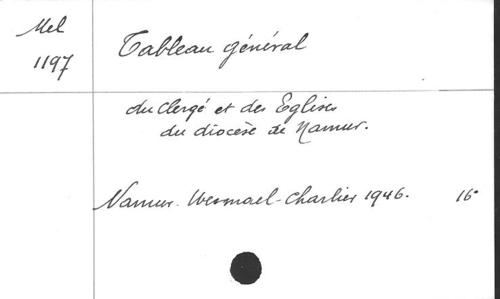 Mel
1197
Tableau général
du Clergé et des Eglises
du diocèse de Namur.
Namur. Wesmael-Charlier 1946. 16°